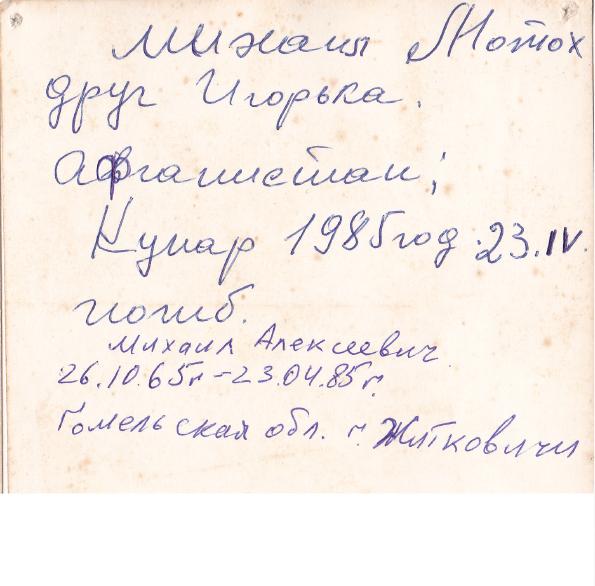 Михаил Мотох
друг Игорька.
Афганистан;
Кунар 1985 год. 23.IV.
погиб.
Михаил Алексеевич
26.10.65г-23.04.85г.
Гомельская обл. г. Житковичи